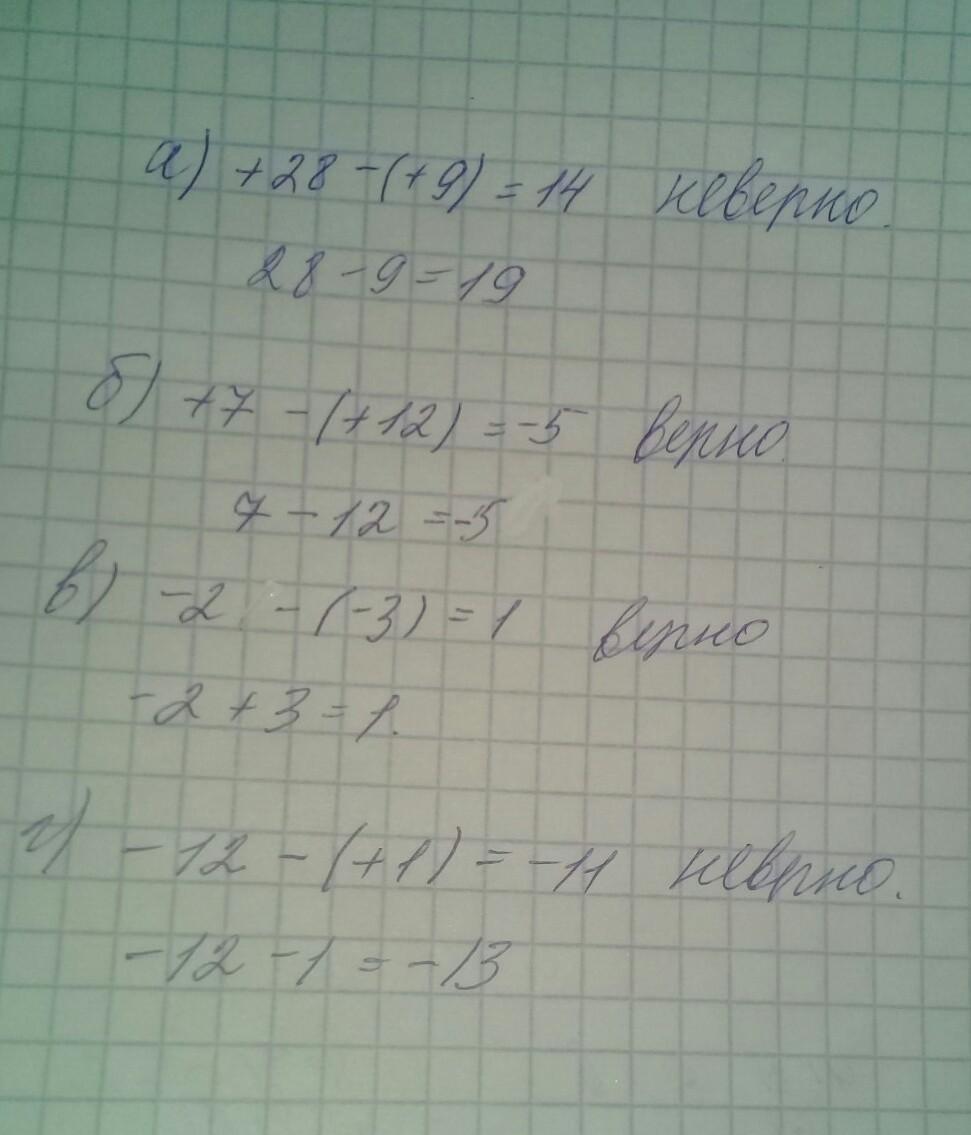 а) +28 -(+9) = 14 неверно.
28 - 9 = 19
б) +7 - (+12) = -5 верно.
7 - 12 = -5
в) -2 - (-3) = 1 верно
-2 + 3 = 1.
г) -12 - (+1) = -11 неверно.
-12 - 1 = -13